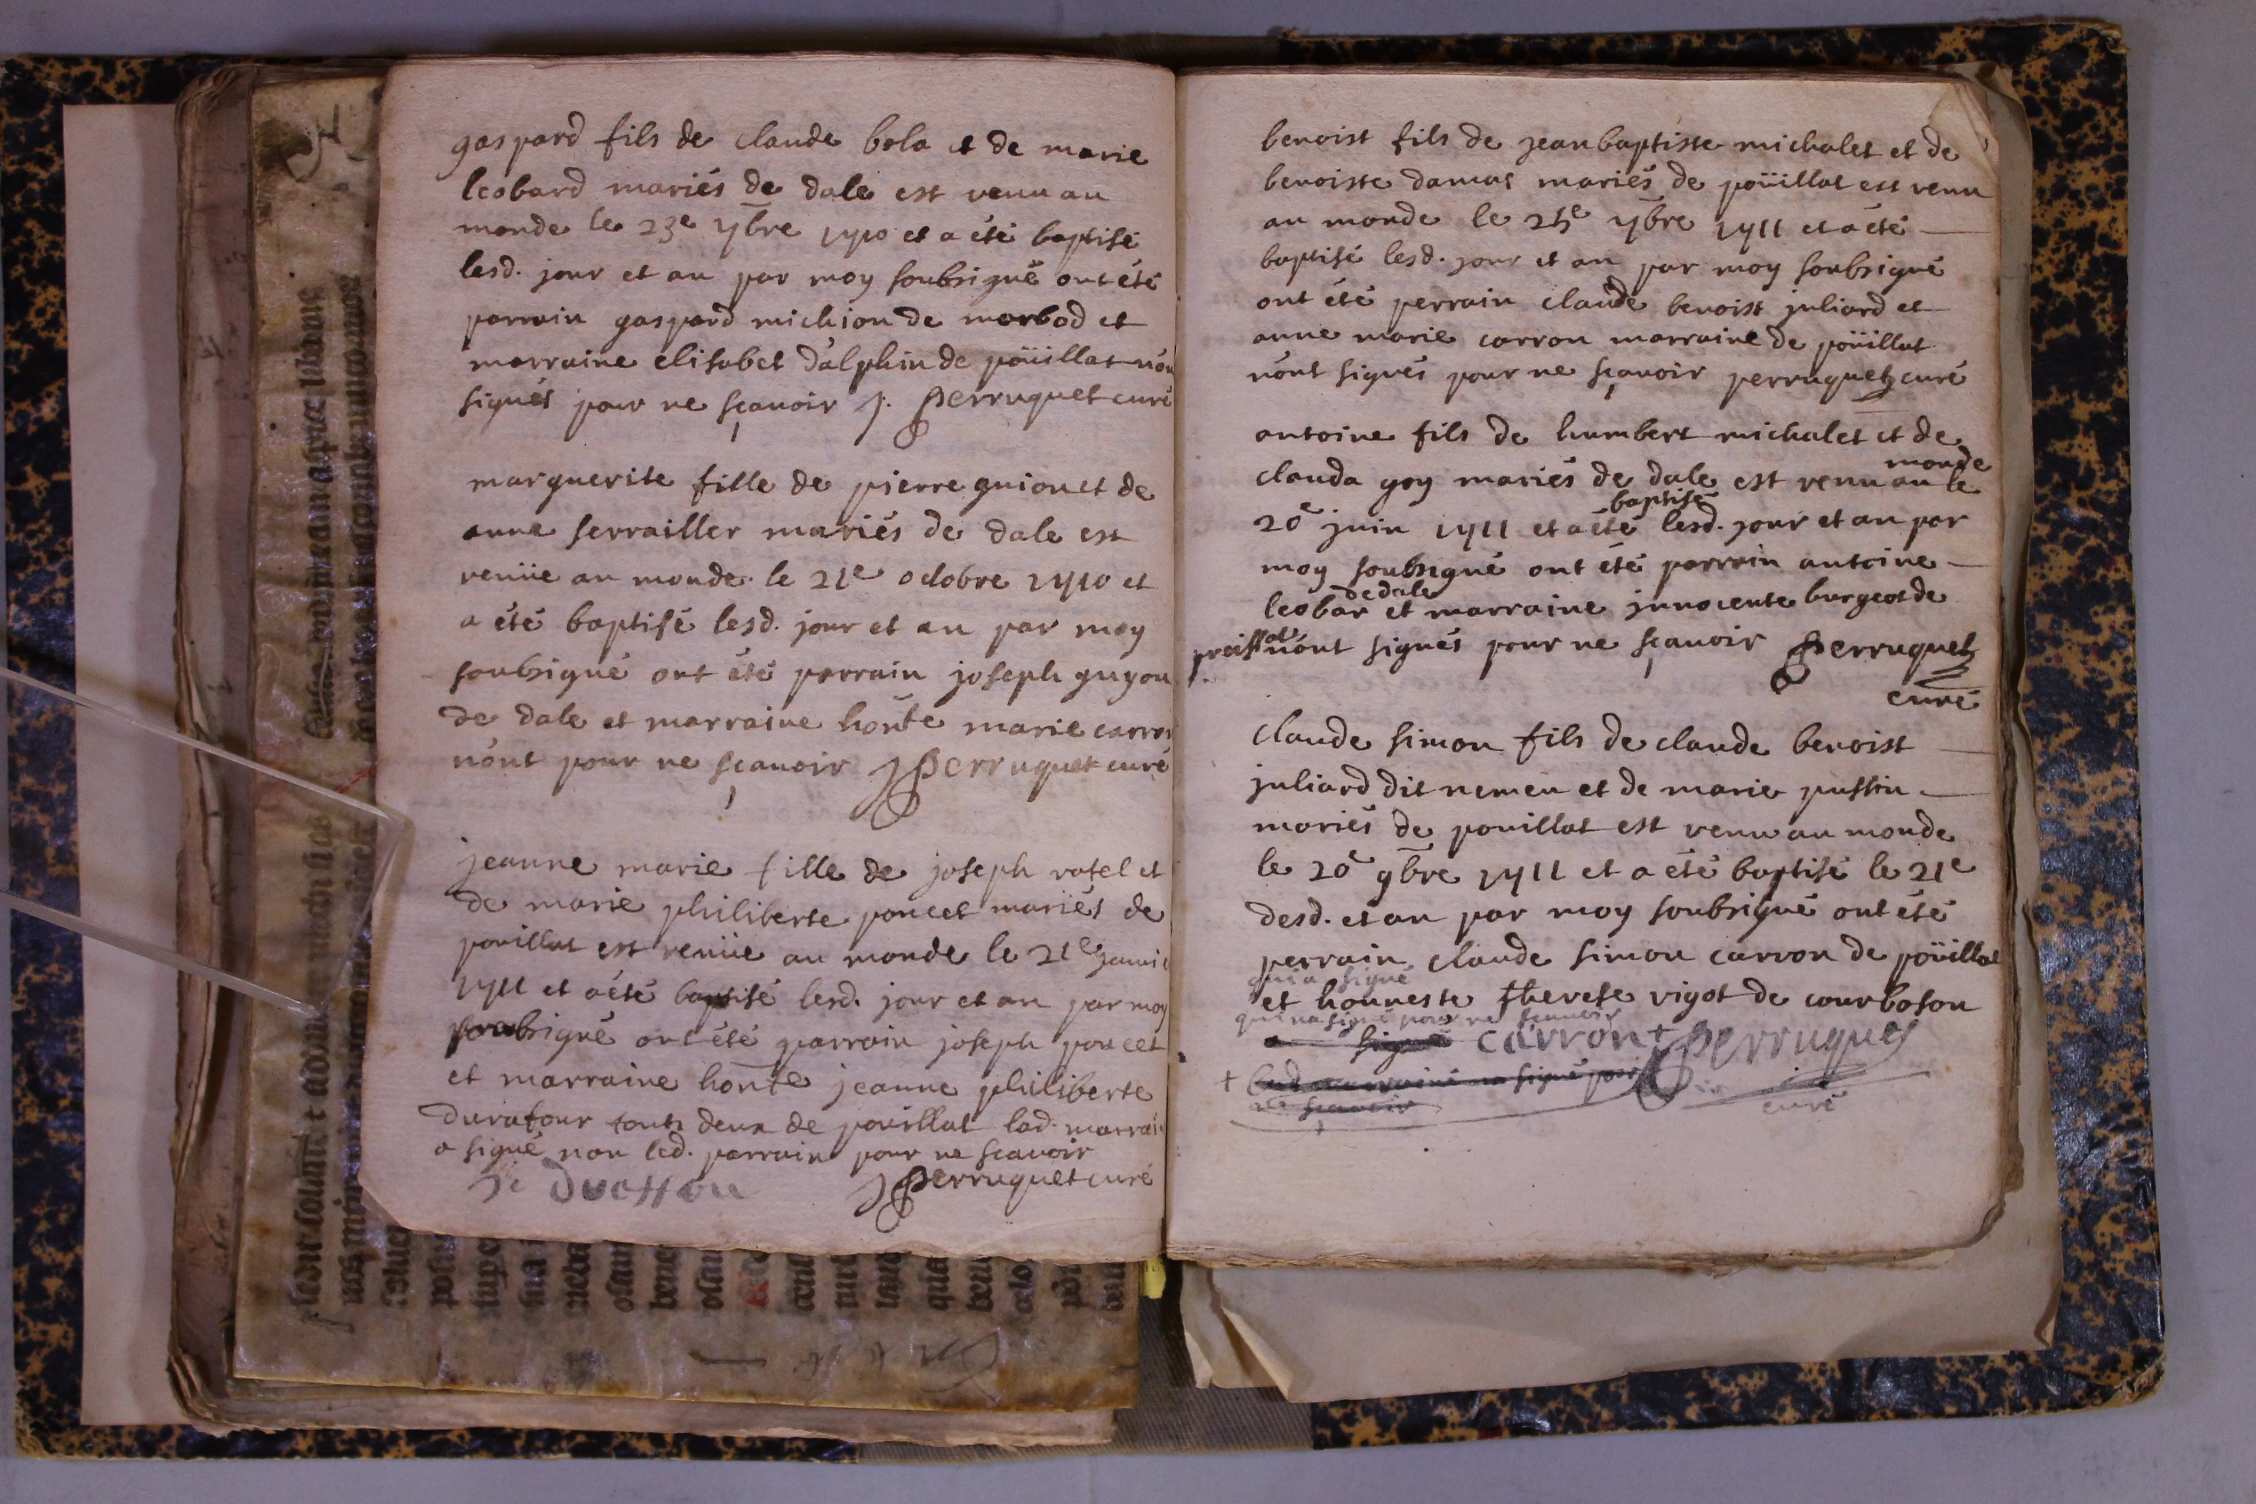 gaspard fils de claude bola et de marie
leobard mariés de dale est venu au
monde le 23e 7bre 1710 et a été baptisé
lesd. jour et an par moy soubsigné ont été
parrain gaspard michion de morbod et
marraine elisabet dalphin de poüillat non
signés pour ne sçavoir j. perruquet curé
marguerite fille de pierre guion et de
anne serrailler mariés de dale est
venüe au monde le 21e octobre 1710 et
a été baptisé lesd. jour et an par moy
soubsigné ont été parrain joseph guyon
de dale et marraine honte marie carron
n'ont pour ne sçavoir j perruquet curé
jeanne marie fille de joseph ratel et
de marie philiberte poncet mariés de
pouillat est venüe au monde le 21e janvi
1711 et a été baptisé lesd. jour et an par moy
soubsigné ont été parrain joseph poncet
et marraine honte jeanne philiberte
durafour touts deux de pouillat lad. marrai
a signé non led. parrain pour ne scavoir
j perruquet curé
benoist fils de jean baptiste michalet et de
benoiste damas mariés de poüillat est venu
au monde le 25e 7bre 1711 et a été
baptisé lesd. jour et an par moy soubsigné
ont été perrain claude benoist juliard et
anne marie carron marraine de poüillat
n'ont signés pour ne sçavoir perruquet curé
antoine fils de humbert michalet et de
monde
clauda goy mariés de dale est venu au le
baptisé
20e juin 1711 et a été lesd. jour et an par
moy soubsigné ont été parrain antoine
de dale
leobar et marraine jnnocente burgeot de
n'ont signés pour ne sçavoir perruquet
curé
claude simon fils de claude benoist
juliard dit nemeu et de marie pussin
mariés de pouillat est venu au monde
le 20e 9bre 1711 et a été baptisé le 21e
desd. et an par moy soubsigné ont été
perrain claude simon carron de poüillat
qui a signé
et honneste therese vigot de courboson
qui na signé pour ne scavoir
signé carron + perruquet
+ lad marraine na signé pour
ne scavoir
curé